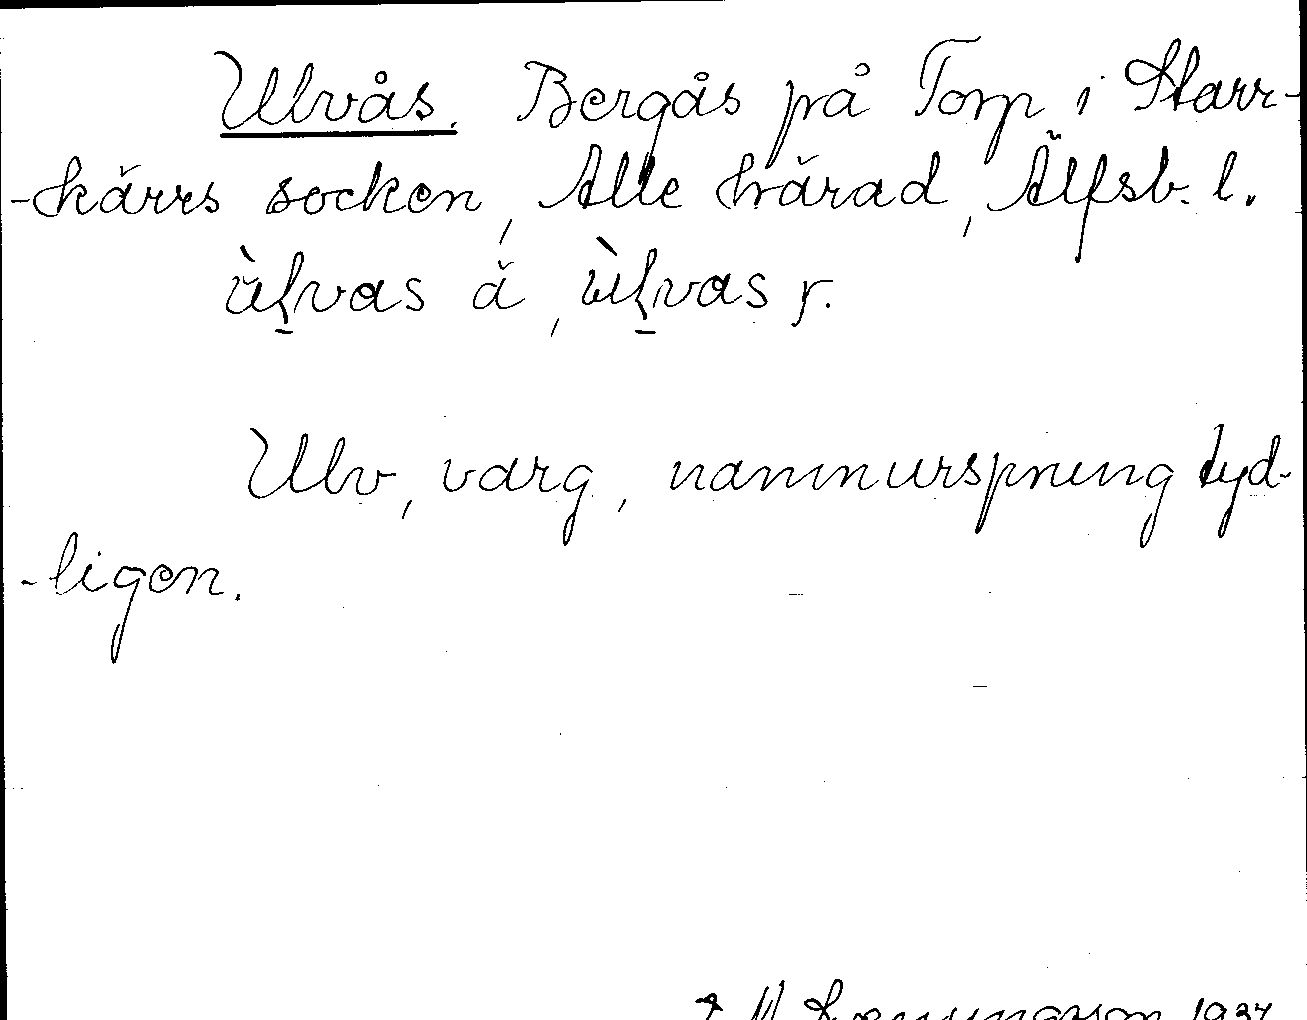 Ulvås. Bergås på Torp i Starr-
-kärrs socken, Ale härad, Älfsb. l.
ùlvas ä, ùlvas y.
Ulv, varg, namnursprung tyd-
-ligen.
1934